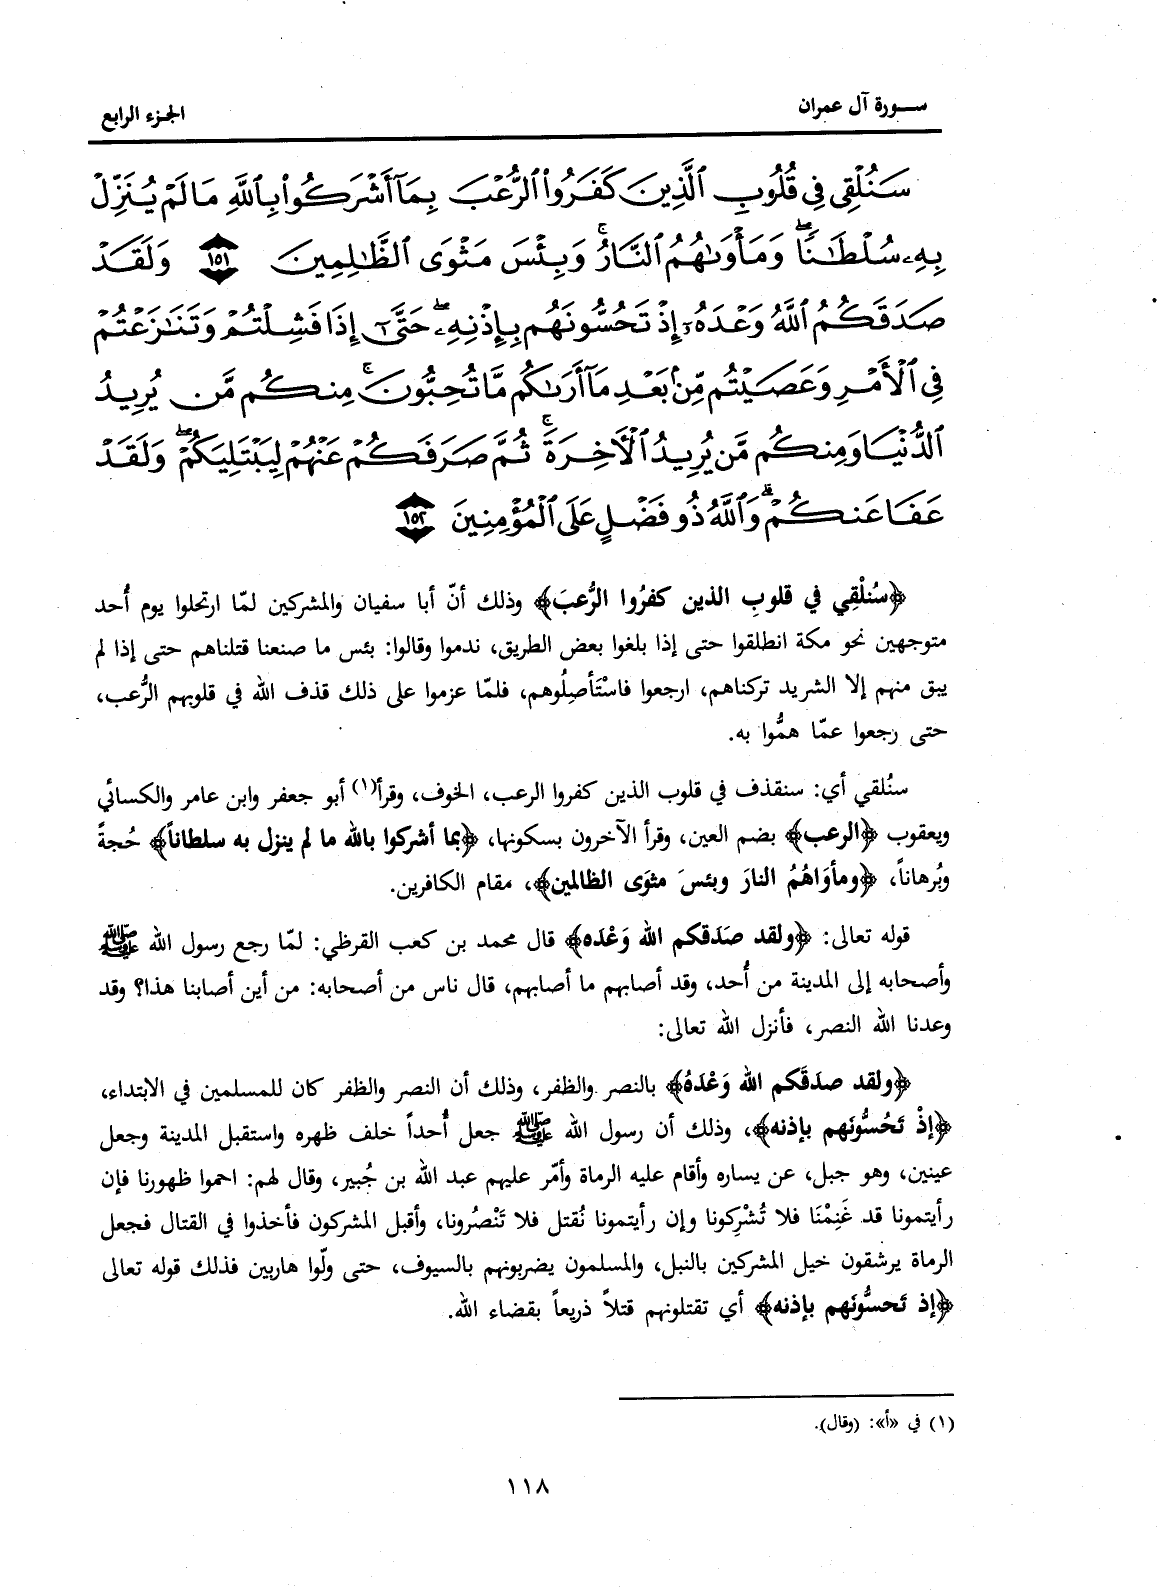 سورة آل عمران
الجزء الرابع
سَنُلْقِى فِى قُلُوبِ ٱلَّذِينَ كَفَرُوا۟ ٱلرُّعْبَ بِمَآ أَشْرَكُوا۟ بِٱللَّهِ مَا لَمْ يُنَزِّلْ
بِهِۦ سُلْطَٰنًا ۖ وَمَأْوَىٰهُمُ ٱلنَّارُ ۚ وَبِئْسَ مَثْوَى ٱلظَّٰلِمِينَ ١٥١ وَلَقَدْ
صَدَقَكُمُ ٱللَّهُ وَعْدَهُۥٓ إِذْ تَحُسُّونَهُم بِإِذْنِهِۦ ۖ حَتَّىٰٓ إِذَا فَشِلْتُمْ وَتَنَٰزَعْتُمْ
فِى ٱلْأَمْرِ وَعَصَيْتُم مِّنۢ بَعْدِ مَآ أَرَىٰكُم مَّا تُحِبُّونَ ۚ مِنكُم مَّن يُرِيدُ
ٱلدُّنْيَا وَمِنكُم مَّن يُرِيدُ ٱلْءَاخِرَةَ ۚ ثُمَّ صَرَفَكُمْ عَنْهُمْ لِيَبْتَلِيَكُمْ ۖ وَلَقَدْ
عَفَا عَنكُمْ ۗ وَٱللَّهُ ذُو فَضْلٍ عَلَى ٱلْمُؤْمِنِينَ ١٥٢
﴿سُنلْقِي في قلوبِ الذين كفرُوا الرُّعبَ﴾ وذلك أنّ أبا سفيان والمشركين لمّا ارتحلوا يوم أُحد
متوجهين نحو مكة انطلقوا حتى إذا بلغوا بعض الطريق، ندموا وقالوا: بئس ما صنعنا قتلناهم حتى إذا لم
يبق منهم إلا الشريد تركناهم، ارجعوا فاسْتَأصِلُوهم، فلمّا عزموا على ذلك قذف الله في قلوبهم الرُّعب،
حتى رجعوا عمّا همُّوا به.
سنُلقي أي: سنقذف في قلوب الذين كفروا الرعب، الخوف، وقرأ(١) أبو جعفر وابن عامر والكسائي
ويعقوب ﴿الرعب﴾ بضم العين، وقرأ الآخرون بسكونها، ﴿بما أشركوا بالله ما لم ينزل به سلطاناً﴾ حُجةً
وبُرهاناً، ﴿ومأوَاهُمُ النارَ وبئسَ مثوَى الظالمين﴾، مقام الكافرين.
قوله تعالى: ﴿ولقد صدَقكم الله وَعْده﴾ قال محمد بن كعب القرظي: لمّا رجع رسول الله ﷺ
وأصحابه إلى المدينة من أُحد، وقد أصابهم ما أصابهم، قال ناس من أصحابه: من أين أصابنا هذا؟ وقد
وعدنا الله النصر، فأنزل الله تعالى:
﴿ولقد صدَقَكم الله وَعْدَهُ﴾ بالنصر والظفر، وذلك أن النصر والظفر كان للمسلمين في الابتداء،
﴿إذْ تَحُسُّونَهم بإذنه﴾، وذلك أن رسول الله ﷺ جعل أُحداً خلف ظهره واستقبل المدينة وجعل
عينين، وهو جبل، عن يساره وأقام عليه الرماة وأمّر عليهم عبد الله بن جُبير، وقال لهم: احموا ظهورنا فإن
رأيتمونا قد غَنِمْنَا فلا تُشْرِكونا وإن رأيتمونا نُقتل فلا تَنْصُرونا، وأقبل المشركون فأخذوا في القتال فجعل
الرماة يرشقون خيل المشركين بالنبل، والمسلمون يضربونهم بالسيوف، حتى ولّوا هاربين فذلك قوله تعالى
﴿إذ تَحسُّونَهم بإذنه﴾ أي تقتلونهم قتلاً ذريعاً بقضاء الله.
(١) في «أ»: (وقال).
١١٨